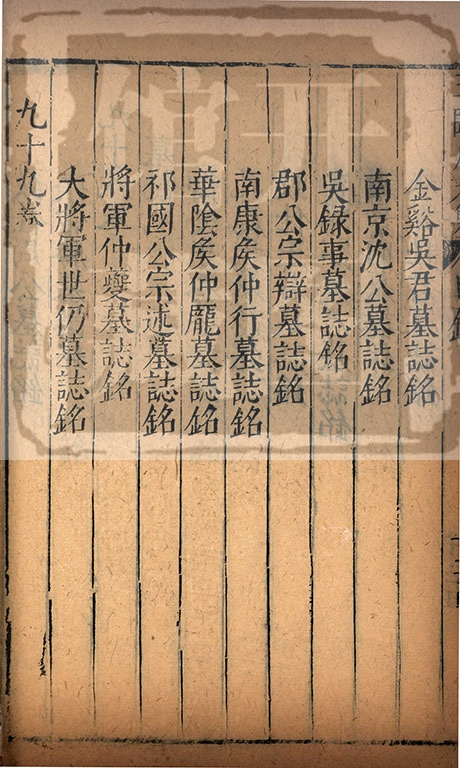 金谿吳君墓誌銘
南京沈公墓誌銘
吳錄事墓誌銘
郡公宗辯墓誌銘
南康侯仲行墓誌銘
華陰侯仲厖墓誌銘
祁國公宗述墓誌銘
將軍仲夔墓誌銘
大將軍世仍墓誌銘
九十九卷